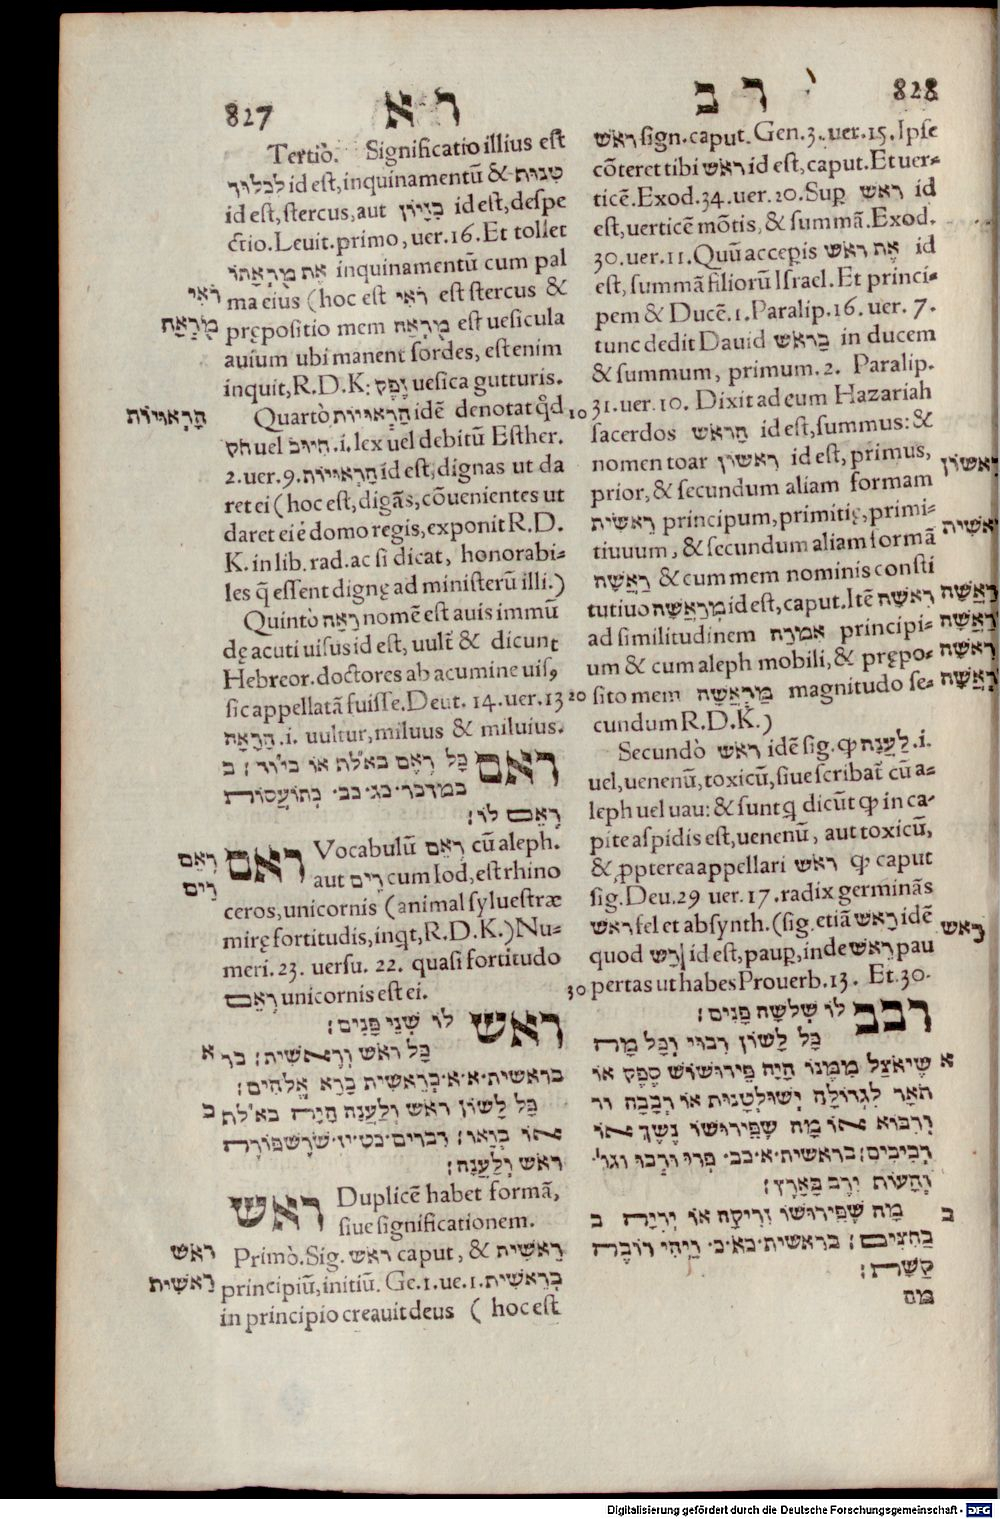 827
רא
Tertiò. Significatio illius est
לכלוך id est, inquinamentũ & טנוּת
id est, stercus, aut בִּזָּיוֹן id est, despe
ctio. Leuit. primo, uer. 16. Et tollet
אֶת מֻרְאָתוֹ inquinamentũ cum pal
רֹאִי
ma eius (hoc est רֹאִי est stercus &
מֻרְאָה
prępositio mem מֻרְאָה est uesicula
auium ubi manent sordes, est enim
inquit, R.D.K: זֶפֶק uesica gutturis.
הָרְאוּיוֹת
Quartò הָרְאוּיוֹת idẽ denotat qd̃ 10
חק uel חיוּב .i. lex uel debitũ Esther.
2. uer. 9. הָרְאוּיוֹת id est, dignas ut da
ret ei (hoc est, digãs, cõuenientes ut
daret ei è domo regis, exponit R.D.
K. in lib. rad. ac si dicat, honorabi-
les q̃ essent dignę ad ministerũ illi.)
Quintò רָאָה nomẽ est auis immũ
dę acuti uisus id est, uult̃ & dicunt
Hebreor. doctores ab acumine uis9
sic appellatã fuisse. Deut. 14. uer. 13 20
הָרָאָה .i. uultur, miluus & miluius.
ראם כָּל רְאֵם בא״לת או בי״וד; ב
במדבר·בג·כב· כְּתוֹעֲפוֹת
רְאֵם לוֹ;
רְאֵם
רֵים
ראם Vocabulũ רְאֵם cũ aleph.
aut רֵים cum Iod, est rhino
ceros, unicornis (animal syluestræ
mirę fortitudis, inq̃t, R.D.K.) Nu-
meri. 23. uersu. 22. quasi fortitudo
רְאֵם unicornis est ei. 30
ראש לוֹ שְׁנֵי פָּנִים;
א כָּל ראש וְרֵאשִׁית; בר
בראשית·א·א·בְּרֵאשִׁית בָּרָא אֱלֹהִים;
ב כָּל לָשוֹן ראש וְלַעֲנָה הָיָה בא״לת
או בְוָאו; דברים·כט·יז·שׁרֶשׁפּוֹרֶה
ראש וְלַעֲנָה;
ראש Duplicẽ habet formã,
siue significationem.
ראש
Primò. Sig. ראש caput, & רֵאשִׁית
רֵאשִׁית
principiũ, initiũ. Ge. 1. ue. 1. בְּרֵאשִׁית
in principio creauit deus ( hoc est
רב
828
ראש sign. caput. Gen. 3. uer. 15. Ipse
cõteret tibi ראש id est, caput. Et uer-
ticẽ. Exod. 34. uer. 20. Sup ראש id
est, uerticẽ mõtis, & summã. Exod.
30. uer. 11. Quũ accepis אֶת ראש id
est, summã filiorũ Israel. Et princi-
pem & Ducẽ. 1. Paralip. 16. uer. 7.
tunc dedit Dauid בָּראש in ducem
& summum, primum. 2. Paralip.
31. uer. 10. Dixit ad eum Hazariah
sacerdos הָראש id est, summus: &
רִאשוֹן
nomen toar רִאשוֹן id est, primus,
prior, & secundum aliam formam
רֵאשִׁית
רֵאשִׁית principum, primitię, primi-
tiuuum, & secundum aliam formã
רַאֲשָׁה & cum mem nominis consti
tutiuo מְרַאֲשָׁה id est, caput. Itẽ רִאשָׁה
ad similitudinem אִמְרָה principi-
um & cum aleph mobili, & prępo-
sito mem מַרְאָשָׁה magnitudo se-
cundum R.D.K.)
Secundò ראש idẽ sig. qp לַעֲנָה .i.
uel, uenenũ, toxicũ, siue scribat̃ cũ a-
leph uel uau: & sunt q dicũt qp in ca-
pite aspidis est, uenenũ, aut toxicũ,
& ppterea appellari ראש qp caput
sig. Deu. 29 uer. 17. radix germinãs
רָאש
ראש fel et absynth. (sig. etiã רָאש idẽ
quod רָשׁ id est, paup, inde רֵאשׁ pau
pertas ut habes Prouerb. 13. Et 30.
רבב לוֹ שְׁלֹשָׁה פָּנִים;
כָּל לָשוֹן רִבּוּי וְכָל מַה
א שֶׁיֹאצַל מִמֶּנוּ הָיָה פֵּירוּשׁוֹשׁ סָפֵק אוֹ
תֹאַר לִגְרוּלָה וְשׁוּלְטָנוּת אוֹ רְבָבָה ור
וְרִבּוֹא או מַה שֶׁפֵּירוּשׁוֹ נֶשֶׁךְ או
רְבִיבִים; בראשית·א·כב· פְּרוּ וּרְבוּ וגו׳·
וְהָעוֹף יִרֶב בָּאָרֶץ;
ב מַה שֶׁפֵּירוּשׁוֹ זְרִיקָה אוֹ יְרִיָה ב
בַּחִצִּים; בראשית·כא·כ· וַיְהִי רוֹבֶה
קַשָּׁת;
מה